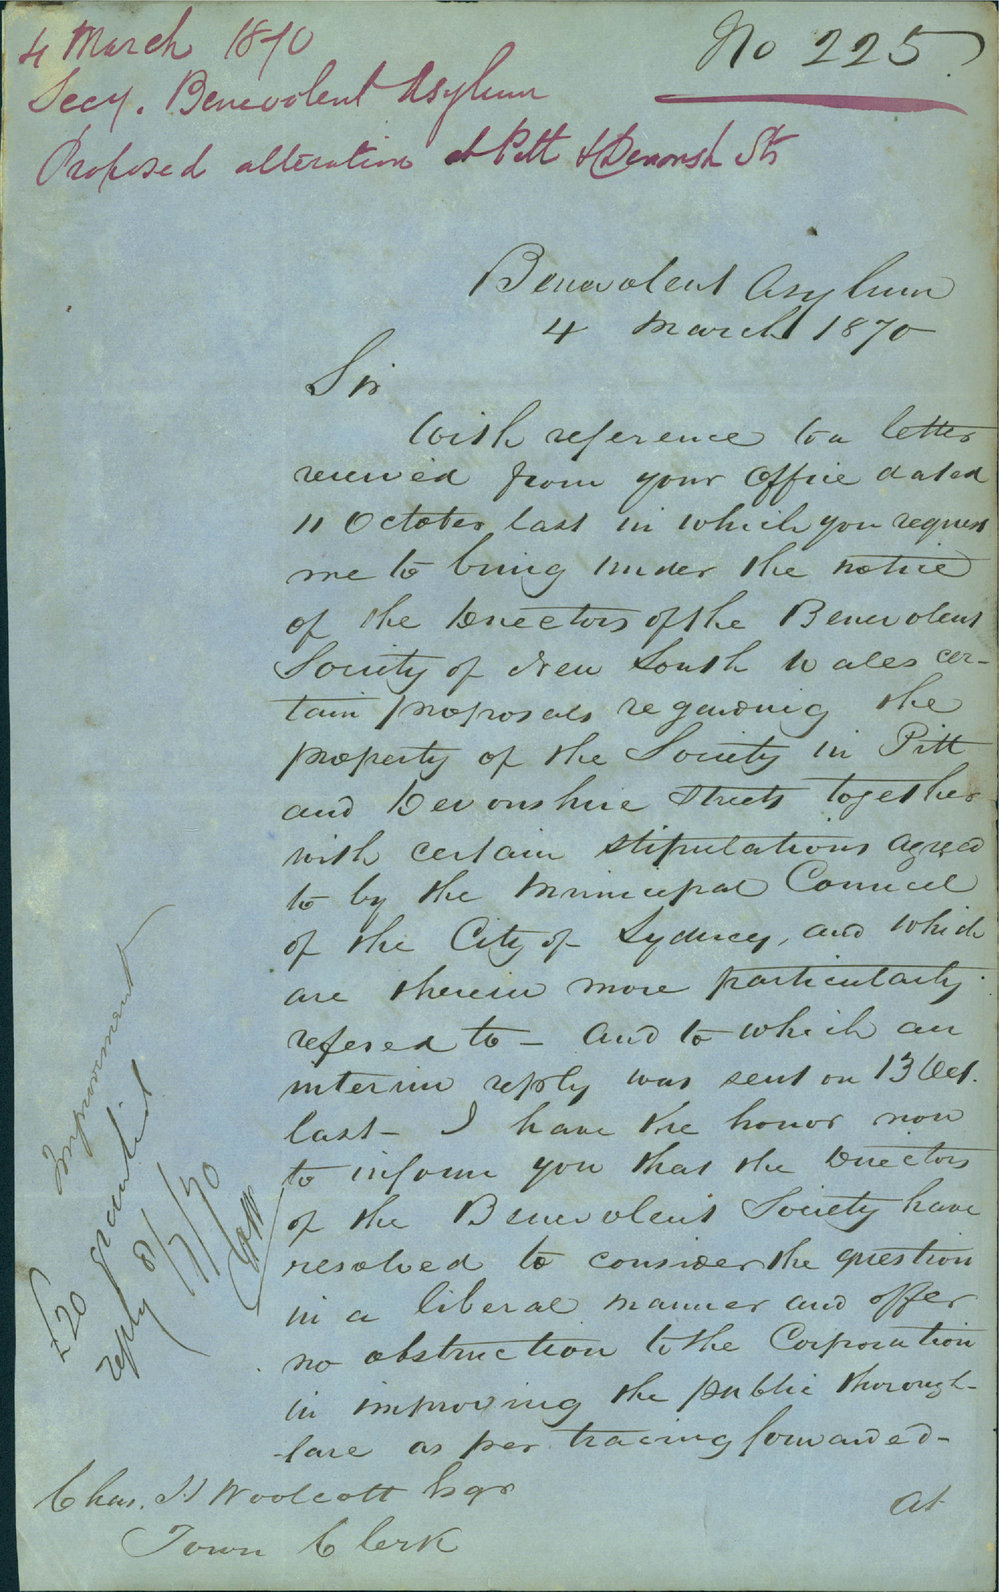 4 March 1870
No 225
Secy. Benevolent Asylum
Proposed alteration at Pitt & Devonsh Sts
Benevolent Asylum
4 March 1870
Sir
With reference to a letter
received from your Office dated
11 October last in which you request
me to bring under the notice
of the Directors of the Benevolent
Society of New South Wales cer-
tain proposals regarding the
property of the Society in Pitt
and Devonshire Streets together
with certain stipulations agreed
to by the Municipal Council
of the City of Sydney, and which
are therein more particularly
refered to - and to which an
interim reply was sent on 13 Oct.
last - I have the honor now
to inform you that the Directors
of the Benevolent Society have
resolved to consider the question
in a liberal manner and offer
no obstruction to the Corporation
in improving the public thorough-
fare as per tracing forwarded -
At
Chas. H Woolcott Esqr
Town Clerk
Improvement
£20
reply